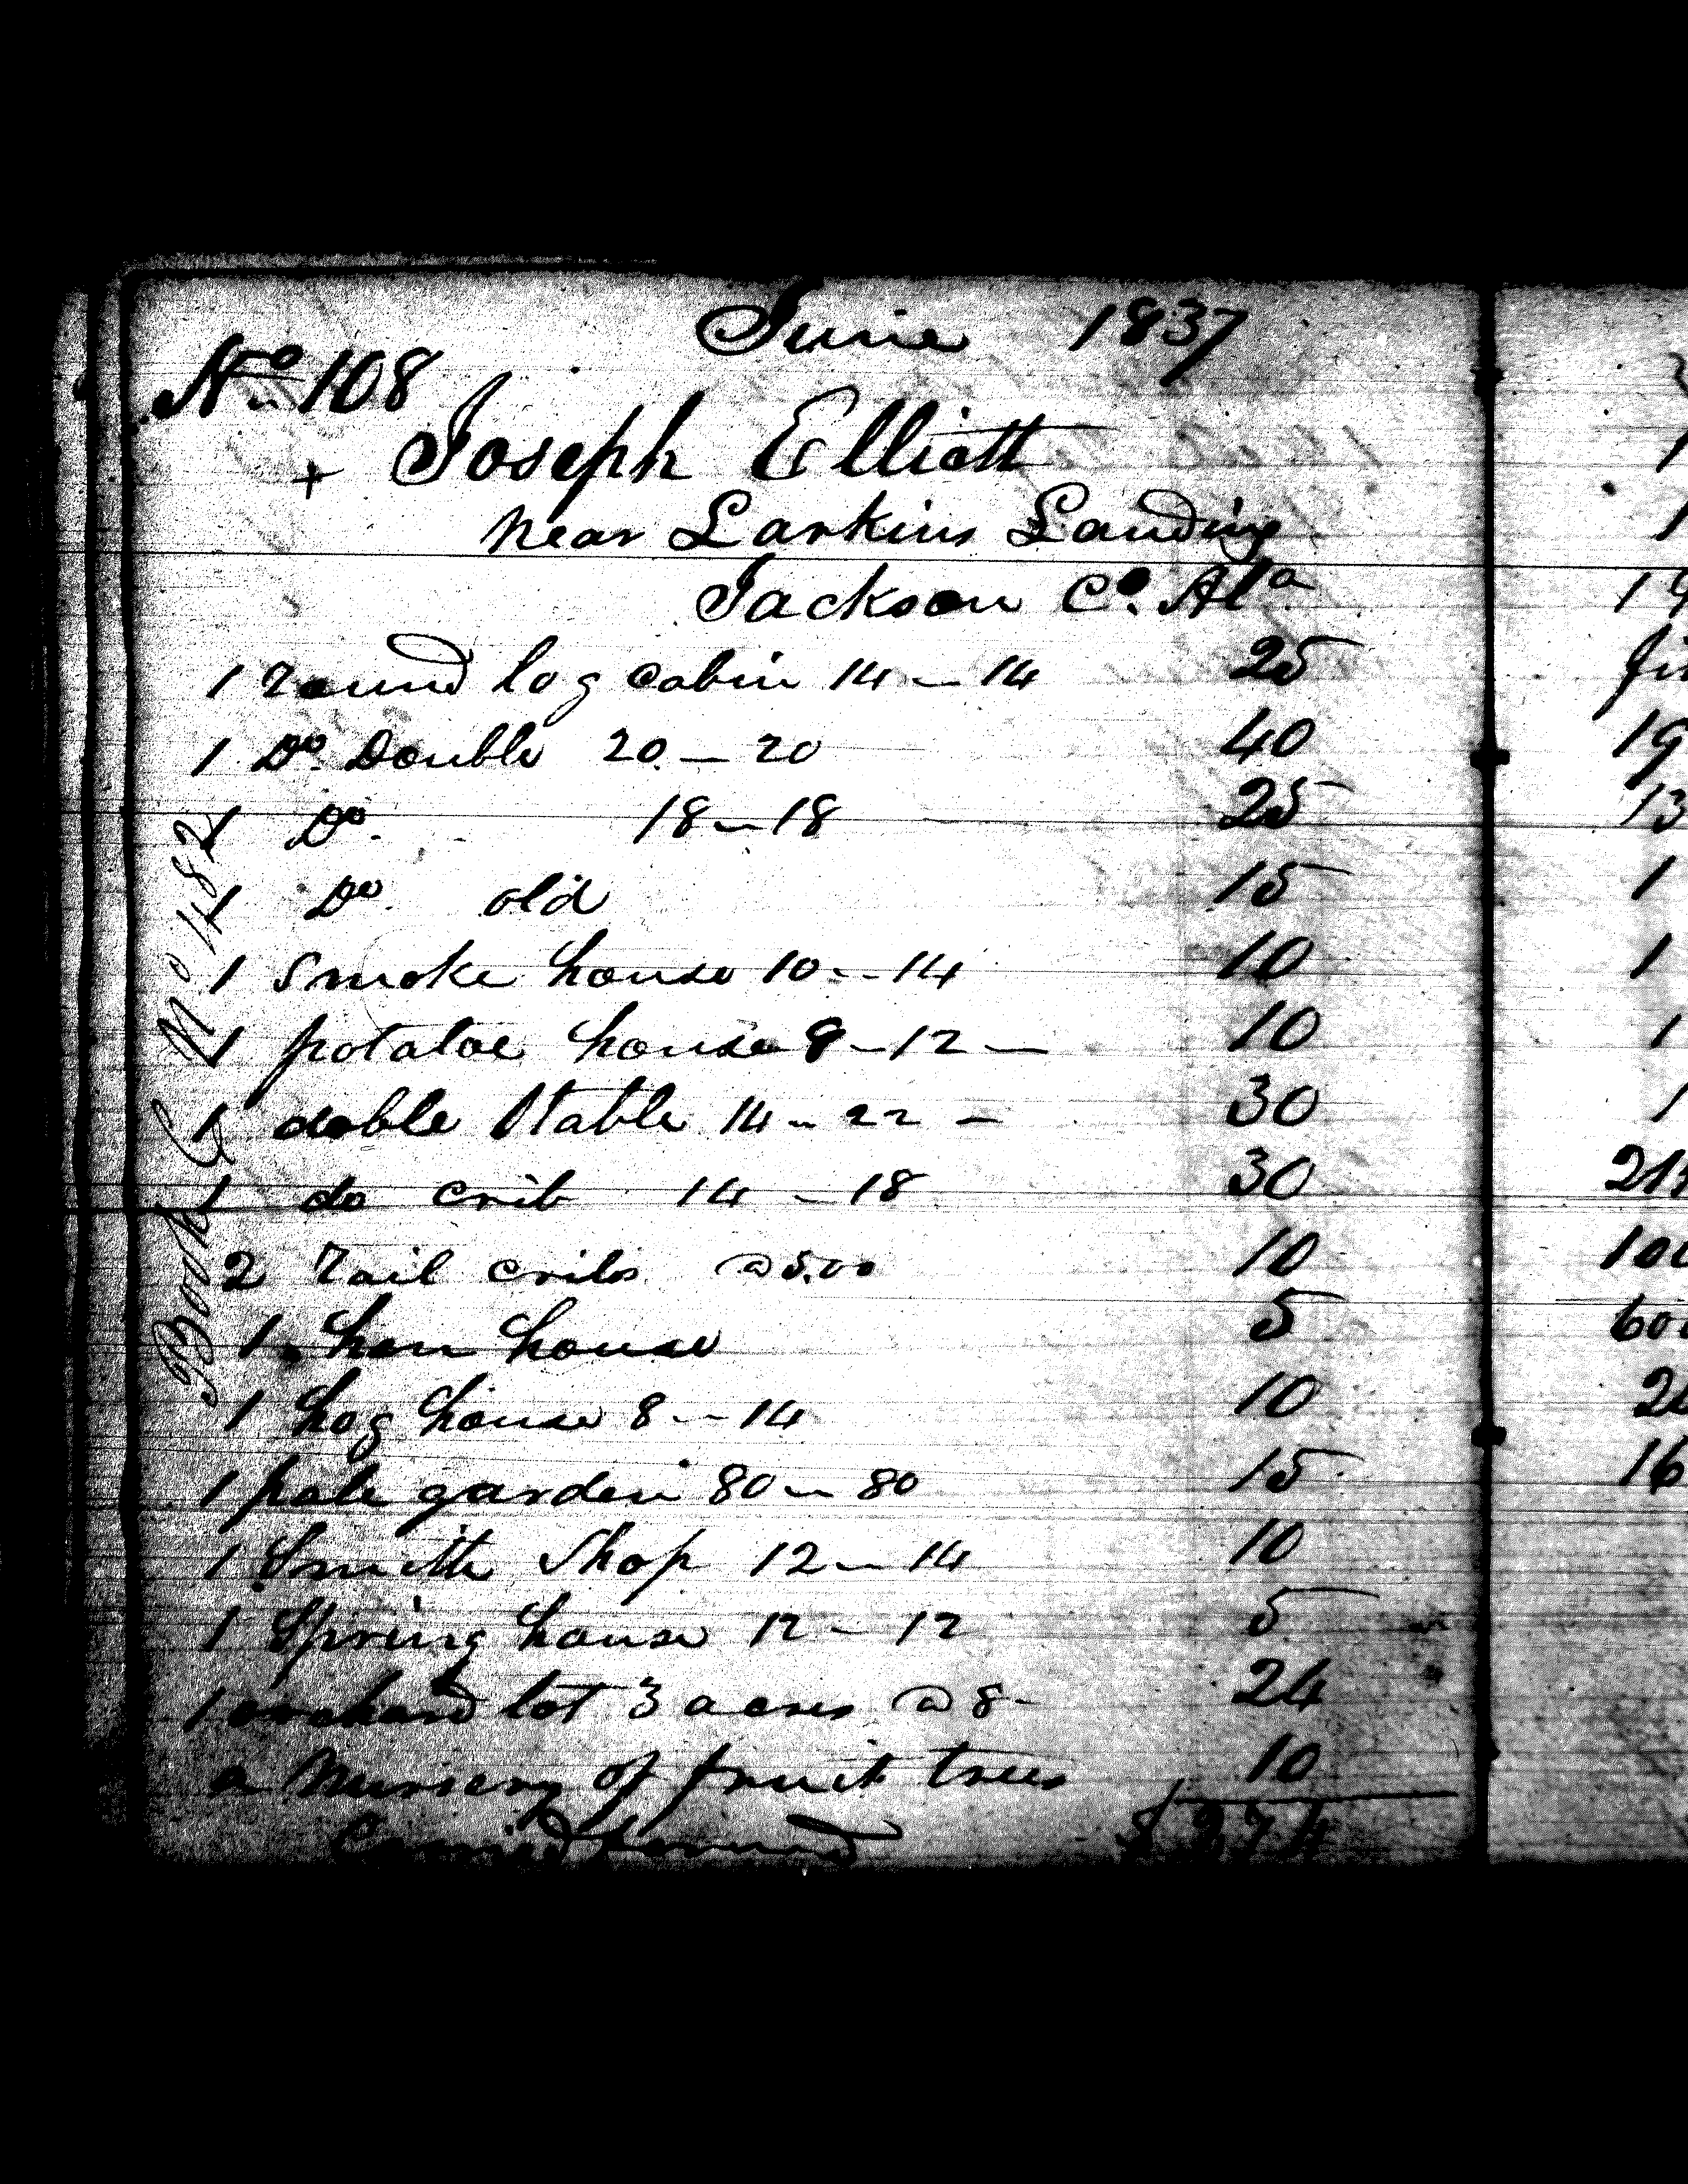 June 1837
No 108
+ Joseph Elliott
near Larkins Landing
Jackson Co. Ala
1 round log cabin 14 - 14 25
1 Do. Double 20. - 20 40
1 Do. 18 - 18 25
1 Do. old 15
1 Smoke house 10 - 14 10
1 potatoe house 9 - 12 - 10
1 doble Stable 14 - 22 - 30
1 do crib 14 - 18 30
2 rail cribs @ 5.00 10
1 hen house 5
1 hog house 8 - 14 10
1 pale garden 80 - 80 15
1 Smith Shop 12 - 14 10
1 Spring house 12 - 12 5
1 orchard lot 3 acres @ 8 - 24
a Nursery of fruit trees 10
Carried forward $ 274
Book G No 482
1
1
1
1
1
1